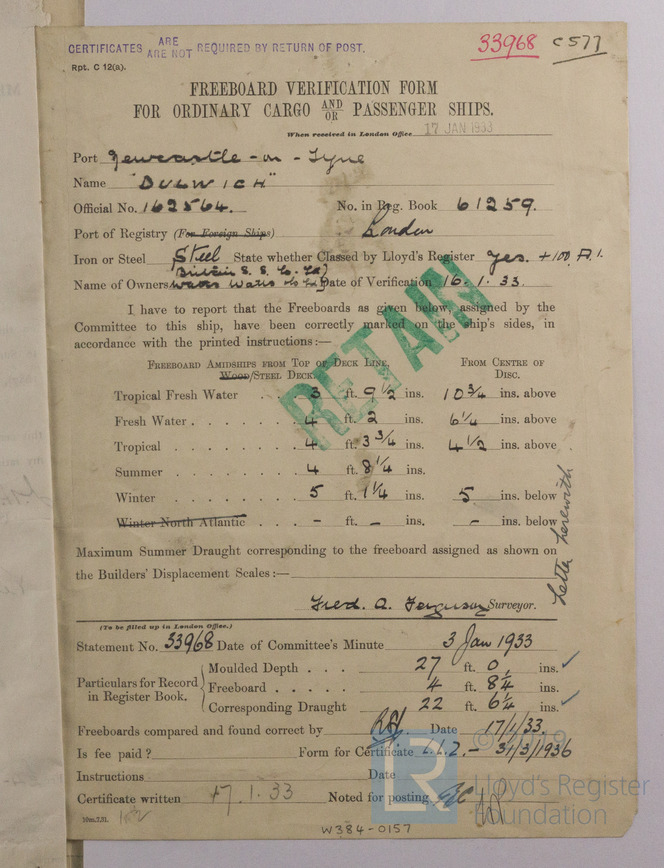 CERTIFICATES ARE / ARE NOT REQUIRED BY RETURN OF POST.
33968 C577
Rpt. C 12(a).
FREEBOARD VERIFICATION FORM
FOR ORDINARY CARGO AND/OR PASSENGER SHIPS.
When received in London Office 17 JAN 1933
Port Newcastle-on-Tyne
Name "DULWICH"
Official No. 162564. No. in Reg. Book 61259.
Port of Registry (For Foreign Ships) London
Iron or Steel Steel State whether Classed by Lloyd's Register yes. +100 A.1.
Britain S.S. Co. Ltd
Name of Owners Watts Watts & Co Ltd Date of Verification 16.1.33.
I have to report that the Freeboards as given below, assigned by the
Committee to this ship, have been correctly marked on the ship's sides, in
accordance with the printed instructions:—
RETAIN
FREEBOARD AMIDSHIPS FROM TOP OF DECK LINE, FROM CENTRE OF
WOOD/STEEL DECK. DISC.
Tropical Fresh Water . . 3 ft. 9 1/2 ins. 10 3/4 ins. above
Fresh Water . . . . . . 4 ft. 2 ins. 6 1/4 ins. above
Tropical . . . . . . . 4 ft. 3 3/4 ins. 4 1/2 ins. above
Summer . . . . . . . 4 ft. 8 1/4 ins.
Winter . . . . . . . 5 ft. 1 1/4 ins. 5 ins. below
Winter North Atlantic . . . - ft. - ins. - ins. below
Letter herewith
Maximum Summer Draught corresponding to the freeboard assigned as shown on
the Builders' Displacement Scales:—
Fred. A. Ferguson Surveyor.
(To be filled up in London Office.)
Statement No. 33968 Date of Committee's Minute 3 Jan 1933
Particulars for Record in Register Book.
Moulded Depth . . . 27 ft. 0 ins. ✓
Freeboard . . . . . 4 ft. 8 1/4 ins.
Corresponding Draught 22 ft. 6 1/4 ins. ✓
Freeboards compared and found correct by Date 17/1/33.
Is fee paid? Form for Certificate L.L.2. – 31/3/1936
Instructions Date
Certificate written 17.1.33 Noted for posting
© 2019
LR
Lloyd's Register
Foundation
W384-0157